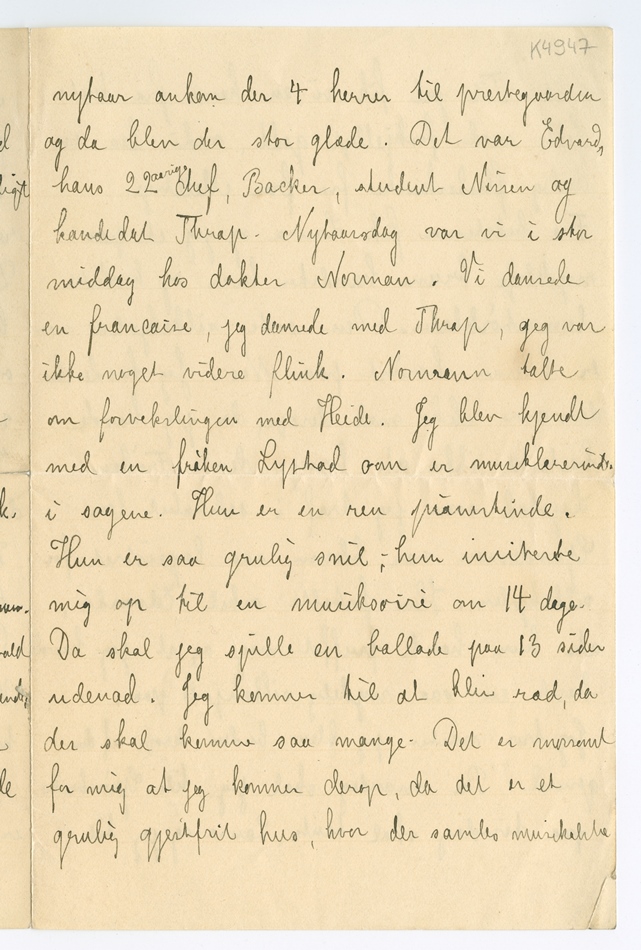 K4947
nytaar ankom der 4 herrer til prestegaarden
og da blev der stor glæde. Det var Edvard,
hans 22aarige Chef, Backer, student Nissen og
kandidat Thrap. Nytaarsdag var vi i stor
middag hos dokter Norman. Vi dansede
en francaise, jeg dansede med Thrap, geg var
ikke noget videre flink. Normann talte
om forvekslingen med Heide. Jeg blev kjendt
med en frøken Lystad som er musiklærerinde
i sagene. Hun er en ren pianistinde.
Hun er saa grulig snil; hun inviterte
mig op til en musiksoire om 14 dage.
Da skal jeg spille en ballade paa 13 sider
udenad. Jeg kommer til at bli ræd, da
der skal komme saa mange. Det er morsomt
for mig at jeg kommer derop, da det er et
grulig gjestfrit hus, hvor der samles musikalske